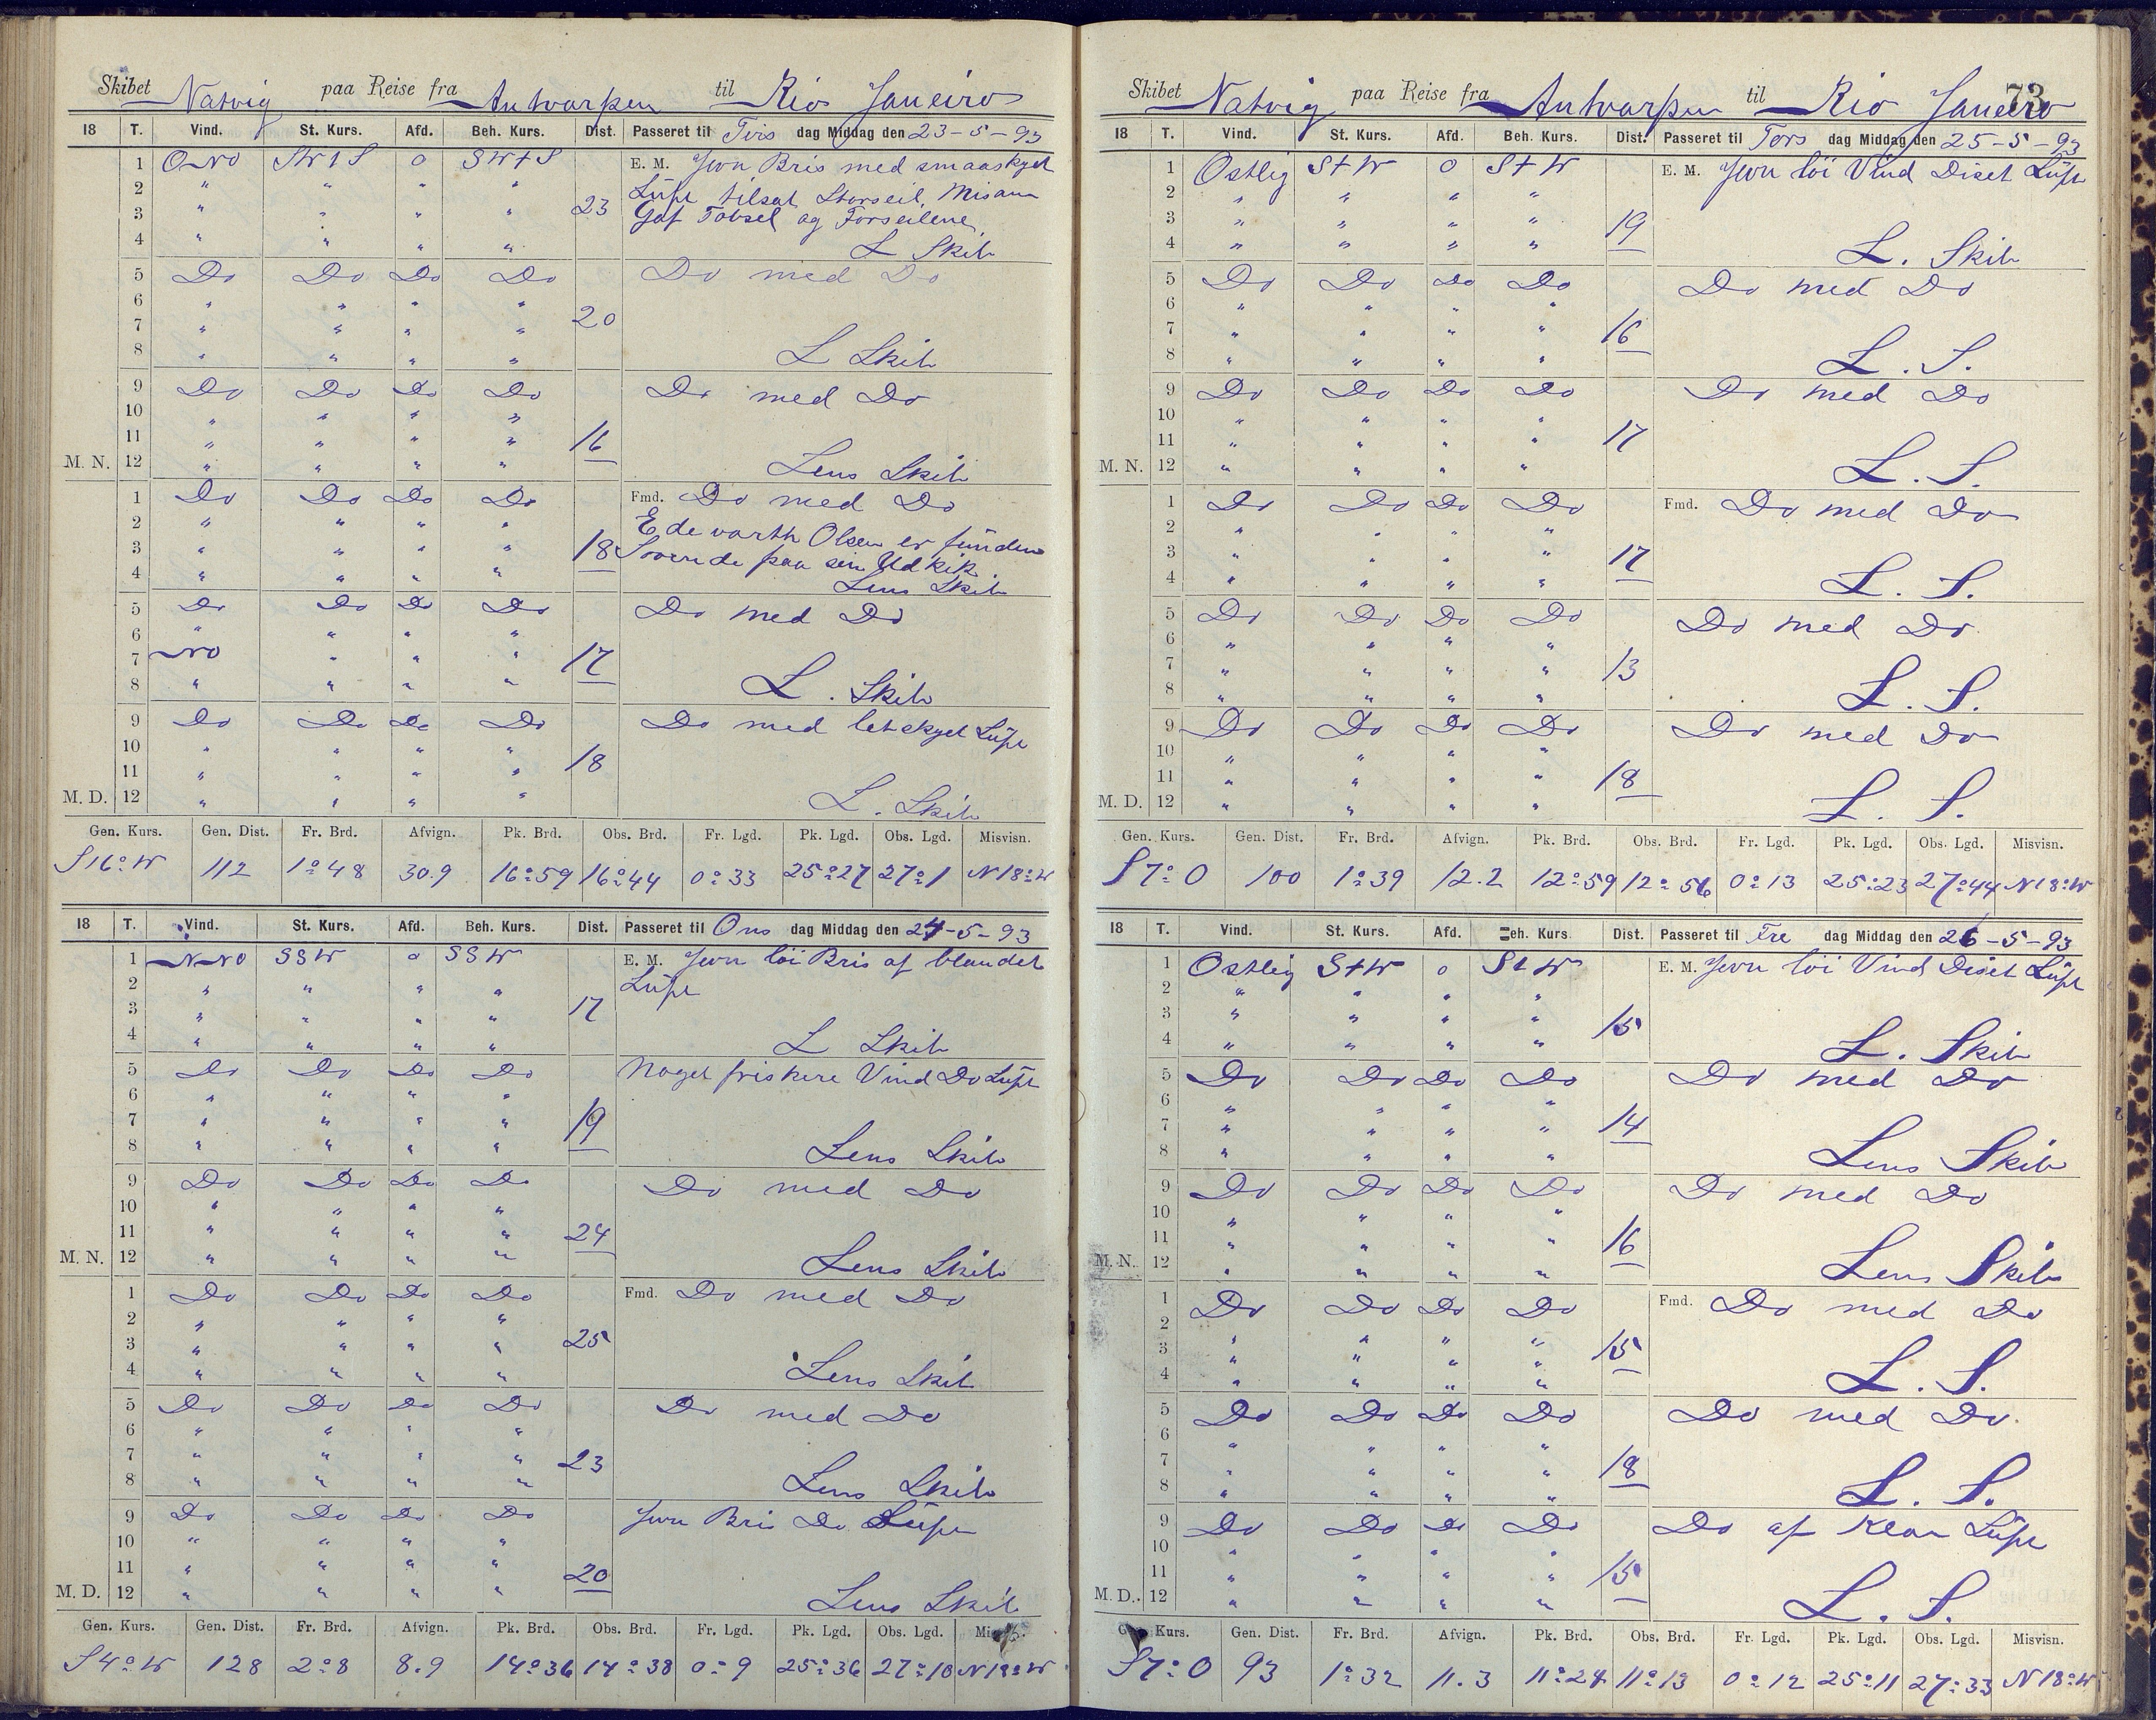 Skibet Natvig paa Reise fra Antwarpen til Rio Janeiro
18 T. Vind. St. Kurs. Afd. Beh. Kurs. Dist. Passeret til Tirs dag Middag den 23-5-93
1 O-NO SWtS 0 SWtS E. M. Jevn Bris med smaaskyet
2 " " " " Lüft tilsat Storseil, Misann
3 " " " " 23 Gaf Tobsel og Forseilene
4 " " " " L Skib
5 Do Do Do Do Do med Do
6 " " " "
7 " " " " 20
8 " " " " L Skib
9 Do Do Do Do Do med Do
10 " " " "
11 " " " " 16
M. N. 12 " " " " Lens Skib
1 Do Do Do Do Fmd. Do med Do
2 " " " " Edevarth Olsen er fünden
3 " " " " 18 Sovende paa sin Udkik
4 " " " " Lens Skib
5 Do Do Do Do Do med Do
6 " " " "
7 NO " " " 17
8 " " " " L. Skib
9 Do Do Do Do Do med letskyet Lüft
10 " " " "
11 " " " " 18
M. D. 12 " " " " L. Skib
Gen. Kurs. Gen. Dist. Fr. Brd. Afvign. Pk. Brd. Obs. Brd. Fr. Lgd. Pk. Lgd. Obs. Lgd. Misvisn.
S16°W 112 1°48 30.9 16°59 16°44 0°33 25°27 27°1 N18°W
18 T. Vind. St. Kurs. Afd. Beh. Kurs. Dist. Passeret til Ons dag Middag den 24-5-93
1 N-NO SSW 0 SSW E. M. Jevn löi Bris af blandet
2 " " " " Lüft
3 " " " " 17
4 " " " " L Skib
5 Do Do Do Do Noget friskere Vind Do Lüft
6 " " " "
7 " " " " 19
8 " " " " Lens Skib
9 Do Do Do Do Do med Do
10 " " " "
11 " " " " 24
M. N. 12 " " " " Lens Skib
1 Do Do Do Do Fmd. Do med Do
2 " " " "
3 " " " " 25
4 " " " " Lens Skib
5 Do Do Do Do Do med Do
6 " " " "
7 " " " " 23
8 " " " " Lens Skib
9 Do Do Do Do Jevn Bris Do Lüft
10 " " " "
11 " " " " 20
M. D. 12 " " " " Lens Skib
Gen. Kurs. Gen. Dist. Fr. Brd. Afvign. Pk. Brd. Obs. Brd. Fr. Lgd. Pk. Lgd. Obs. Lgd.
S4°W 128 2°8 8.9 14°36 14°38 0°9 25°36 27°10 N18°W
73
Skibet Natvig paa Reise fra Antvarpen til Rio Janeiro
18 T. Vind. St. Kurs. Afd. Beh. Kurs. Dist. Passeret til Tors dag Middag den 25-5-93
1 Ostlig StW 0 StW E. M. Jevn löi Vind Diset Lüft
2 " " " "
3 " " " " 19
4 " " " " L. Skib
5 Do Do Do Do Do med Do
6 " " " "
7 " " " " 16
8 " " " " L. S.
9 Do Do Do Do Do med Do
10 " " " "
11 " " " " 17
M. N. 12 " " " " L. S.
1 Do Do Do Do Fmd. Do med Do
2 " " " "
3 " " " " 17
4 " " " " L. S.
5 Do Do Do Do Do med Do
6 " " " "
7 " " " " 13
8 " " " " L. S.
9 Do Do Do Do Do med Do
10 " " " "
11 " " " " 18
M. D. 12 " " " " L. S.
Gen. Kurs. Gen. Dist. Fr. Brd. Afvign. Pk. Brd. Obs. Brd. Fr. Lgd. Pk. Lgd. Obs. Lgd. Misvisn.
S7°O 100 1°39 12.2 12°59 12°56 0°13 25°23 27°44 N18°W
18 T. Vind. St. Kurs. Afd. Beh. Kurs Dist. Passeret til Fre dag Middag den 26-5-93
1 Ostlig StW 0 StW E. M. Jevn löi Vind Diset Lüft
2 " " " "
3 " " " " 15
4 " " " " L. Skib
5 Do Do Do Do Do med Do
6 " " " "
7 " " " " 14
8 " " " " Lens Skib
9 Do Do Do Do Do med Do
10 " " " "
11 " " " " 16
M. N. 12 " " " " Lens Skib
1 Do Do Do Do Fmd. Do med Do
2 " " " "
3 " " " " 15
4 " " " " L. S.
5 Do Do Do Do Do med Do.
6 " " " "
7 " " " " 18
8 " " " " L. S.
9 Do Do Do Do Do af Klar Lüft
10 " " " "
11 " " " " 15
M. D. 12 " " " " L. S.
Gen. Kurs. Gen. Dist. Fr. Brd. Afvign. Pk. Brd. Obs. Brd. Fr. Lgd. Pk. Lgd. Obs. Lgd. Misvisn.
S7°O 93 1°32 11.3 11°24 11°13 0°12 25°11 27°33 N18°W